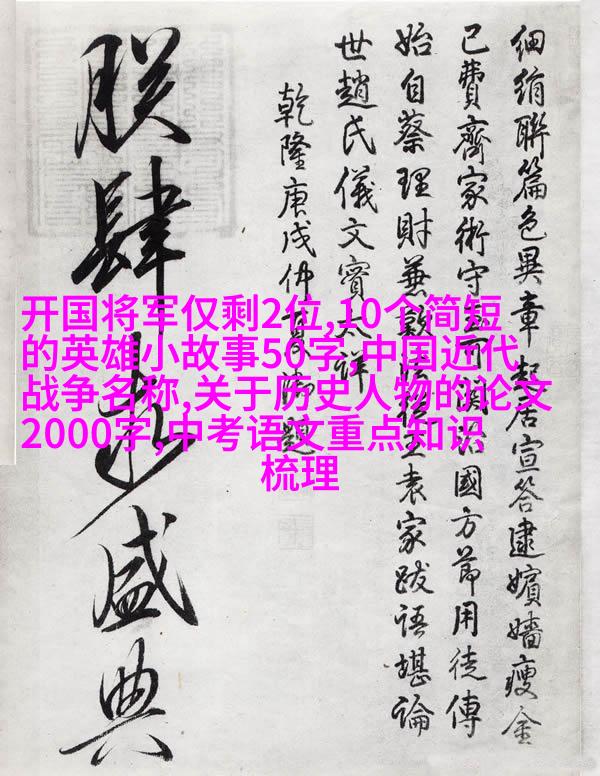 開国将军仅剩2位,10个简短
的英雄小故事50字,中国近代
战争名称,关于历史人物的论文
2000字,中考语文重点知识
梳理
細絹聯篇色異章起居宣答逮嬪嬙瘦金
已費齊家術守國方節用徒傳
始自蔡理財兼袁家跋語堪論
世趙氏儀文實太詳
乾隆庚戌仲夏題
朕肆盛典